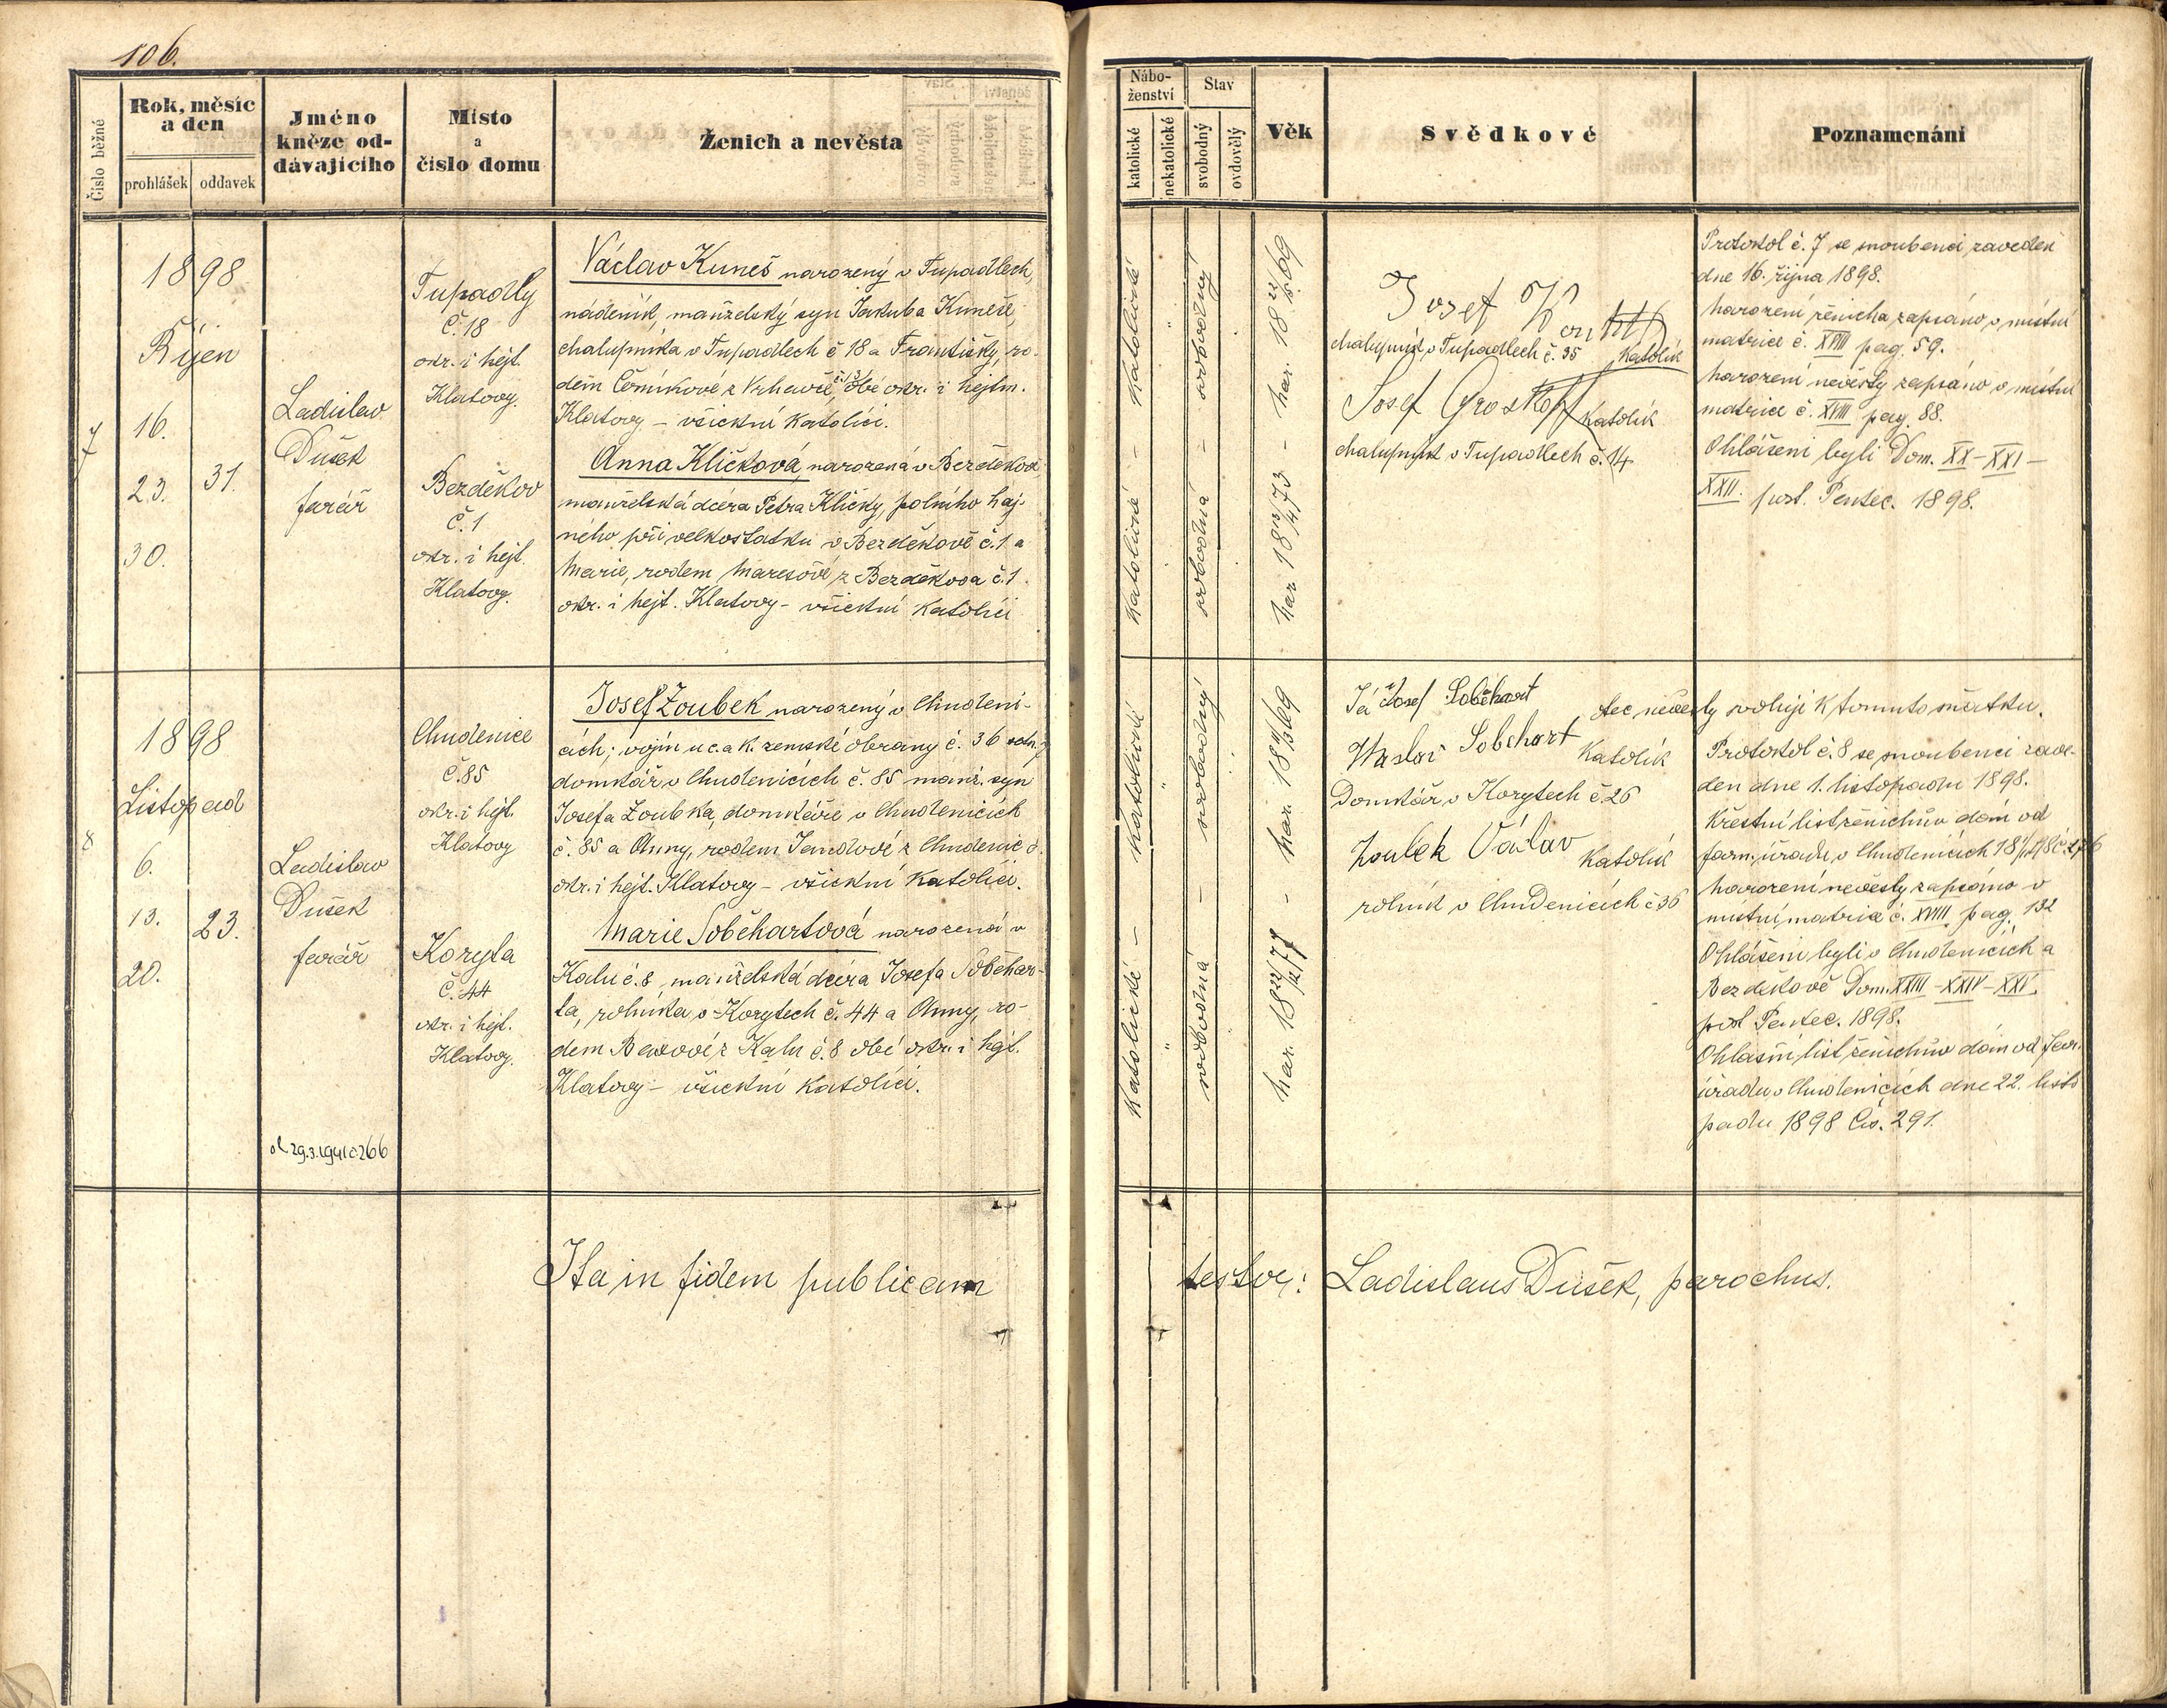 106.
Číslo běžné
Rok, měsíc
a den
prohlášek
oddavek
Jméno
kněze od-
dávajícího
Místo
a
číslo domu
Ženich a nevěsta
7
1898
Říjen
16.
23.
31.
30.
Ladislav
Dušek
farář
Tupadly
č. 18
okr. i hejt.
Klatovy.
Bezděkov
č. 1
okr. i hejt.
Klatovy.
Václav Kuneš narozený v Tupadlech,
nádeník, manželský syn Jakuba Kuneše,
chalupníka v Tupadlech č 18 a Františky, ro-
dem Černíkové z Vrhavče, obé okr. i hejtm.
Klatovy – všickni katolíci.
Anna Kličková, narozená v Bezděkově
manželská dcera Petra Kličky, polního haj-
ného při velkostatku v Bezděkově č. 1 a
Marie, rodem Marešové z Bezděkova č. 1.
okr. i hejt. Klatovy – všickni katolíci
8
1898
Listopad
6.
13.
23.
20.
Ladislav
Dušek
farář
Chudenice
č. 85
okr. i hejt.
Klatovy
Koryta
č. 44
okr. i hejt.
Klatovy.
Josef Zoubek narozený v Chudeni-
cích; vojín u c. a k. zemské obrany č. 36
domkář v Chudenicích č. 85 manž. syn
Josefa Zoubka, domkáře v Chudenicích
č. 85 a Anny, rodem Jandové z Chudenic
okr. i hejt. Klatovy – všickni katolíci.
Marie Soběhartová narozená v
Kalu č. 8, manželská dcera Josefa Soběhar-
ta, rolníka v Korytech č. 44 a Anny, ro-
dem z Kalu č. 8 obé okr. i hejt.
Klatovy – všickni katolíci.
29.3.1941 č. 266
Ita in fidem publicam
Nábo-
ženství
katolické
nekatolické
Stav
svobodný
ovdovělý
Věk
Svědkové
Poznamenání
katolické – katolické
svobodná – svobodný
nar. 18 13/4 73 – nar. 18 69
Josef
chalupník v Tupadlech č. 35 katolík
Josef Groskopf katolík
chalupník v Tupadlech č. 14
Protokol č. 7 se snoubenci zaveden
dne 16. října 1898.
Narození ženicha zapsáno v místní
matrice č. XVIII pag. 59.
Narození nevěsty zapsáno v místní
matrice č. XVIII pag. 88.
Ohlášeni byli Dom. XX – XXI –
XXII. post. Pentec. 1898.
katolické – katolické
svobodná – svobodný
nar. 18 22/12 77 – nar. 18 69
Já Josef Soběhart otec nevěsty svoluji k tomuto sňatku.
Sobehart katolík
Domkář v Korytech č. 26
Zoubek Václav katolík
rolník v Chudenicích č 36
Protokol č. 8 se snoubenci zave-
den dne 1. listopadu 1898.
Křestní list ženichův dán od
farn. úřadu v Chudenicích
Narození nevěsty zapsáno v
místní matrice č. XVIII pag. 132
Ohlášeni byli v Chudenicích a
Bezděkově Dom. XXIII – XXIV – XXV.
post Pentec. 1898.
Ohlašní list ženichův dán od far.
úřadu v Chudenicích dne 22. listo
padu 1898 čís. 291.
testor: Ladislaus Dušek, parochus.